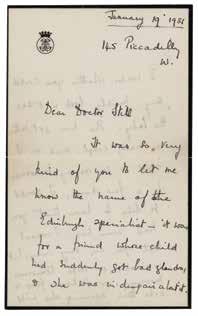 January 19th 1931
145 Piccadilly
W.
Dear Doctor Still
It was so very
kind of you to let me
know the name of the
Edinburgh specialist - it was
for a friend whose child
had suddenly got bad glandes,
& she was in despair about it.